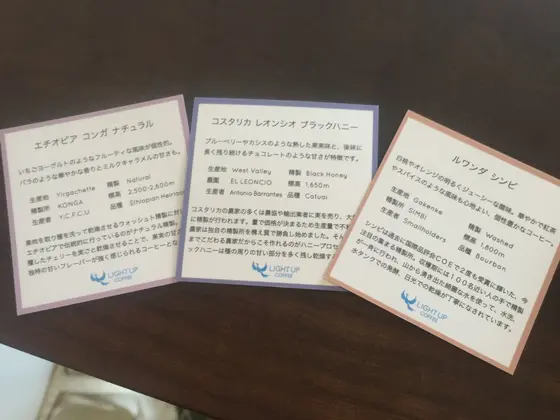 エチオピア コンガ ナチュラル
いちごヨーグルトのようなフルーティな風味が個性的。
バラのような華やかな香りとミルクキャラメルの甘さも。
生産地 Yirgachette 精製 Natural
精製所 KONGA 標高 2,300-2,600m
生産者 Y.C.F.C.U 品種 Ethiopian Heirloom
果肉を取り種を洗って乾燥させるウォッシュト精製に対
エチオピアで伝統的に行っているのがナチュラル精製。
穫したチェリーを実ごと乾燥させることで、果実の甘さ
独特の甘いフレーバーが強く感じられるコーヒーとな
LIGHT UP
COFFEE
コスタリカ レオンシオ ブラックハニー
ブルーベリーやカシスのような熟した果実味と、後味に
長く残り続けるチョコレートのような甘さが特徴です。
生産地 West Valley 精製 Black Honey
農園 EL LEONCIO 標高 1,650m
生産者 Antonio Barrantes 品種 Catuai
コスタリカの農家の多くは農協や輸出業者に実を売り、大
に精製が行われます。量で価格が決まるため生産量で不
農家は自分の精製所を構え質で勝負し始めました。そん
までこだわる農家だからこそ作れるのがハニープロセ
ックハニーは種の周りの甘い部分を多く残し乾燥す
LIGHT UP
COFFEE
ルワンダ シンビ
白桃やオレンジの明るくジューシーな酸味。華やかで紅茶
やスパイスのような風味も心地よい、個性豊かなコーヒー
生産地 Gakenke 精製 Washed
精製所 SIMBI 標高 1,800m
生産者 Smallholders 品種 Bourbon
シンビは過去に国際品評会COEで2度も受賞に輝いた、今
注目の集まる精製所。収穫期には100名近い人の手で精製
が一斉に行われ、山から湧き出た綺麗な水を使って、水洗、
水タンクでの発酵、日光での乾燥が丁寧になされています。
LIGHT UP
COFFEE